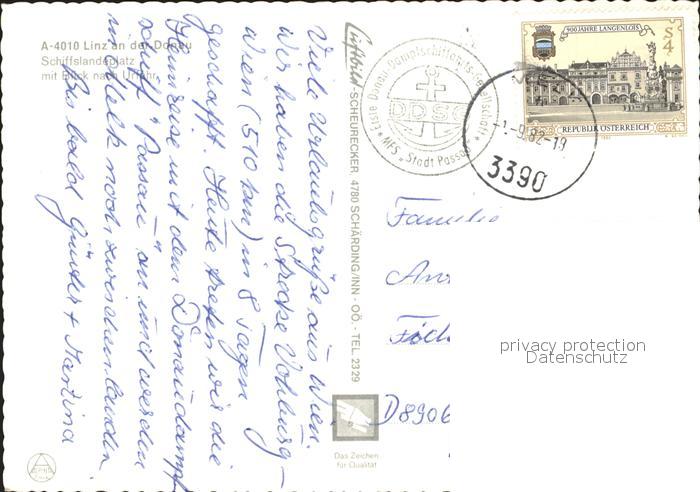 A-4010 Linz an der Donau
Schiffslandeplatz
mit Blick nach Urfahr
Viele Urlaubsgrüße aus Wien.
Wir haben die Strecke Vohburg -
Wien (510 km) in 8 Tagen
geschafft. Heute treten wir die
Heimreise mit dem Donaudampf
schiff "Passau" an und werden
in noch zwischenlanden
Bis bald Günter + Martina
Luftbild SCHEURECKER, 4780 SCHÄRDING/INN - OÖ. - TEL. 2329
Erste Donau-Dampfschiffahrts-Gesellschaft
DDSG
MFS „Stadt Passau“
900 JAHRE LANGENLOIS
S 4
REPUBLIK ÖSTERREICH
-1.-9.82-18
3390
Familie
D8906
privacy protection
Datenschutz
Das Zeichen
für Qualität